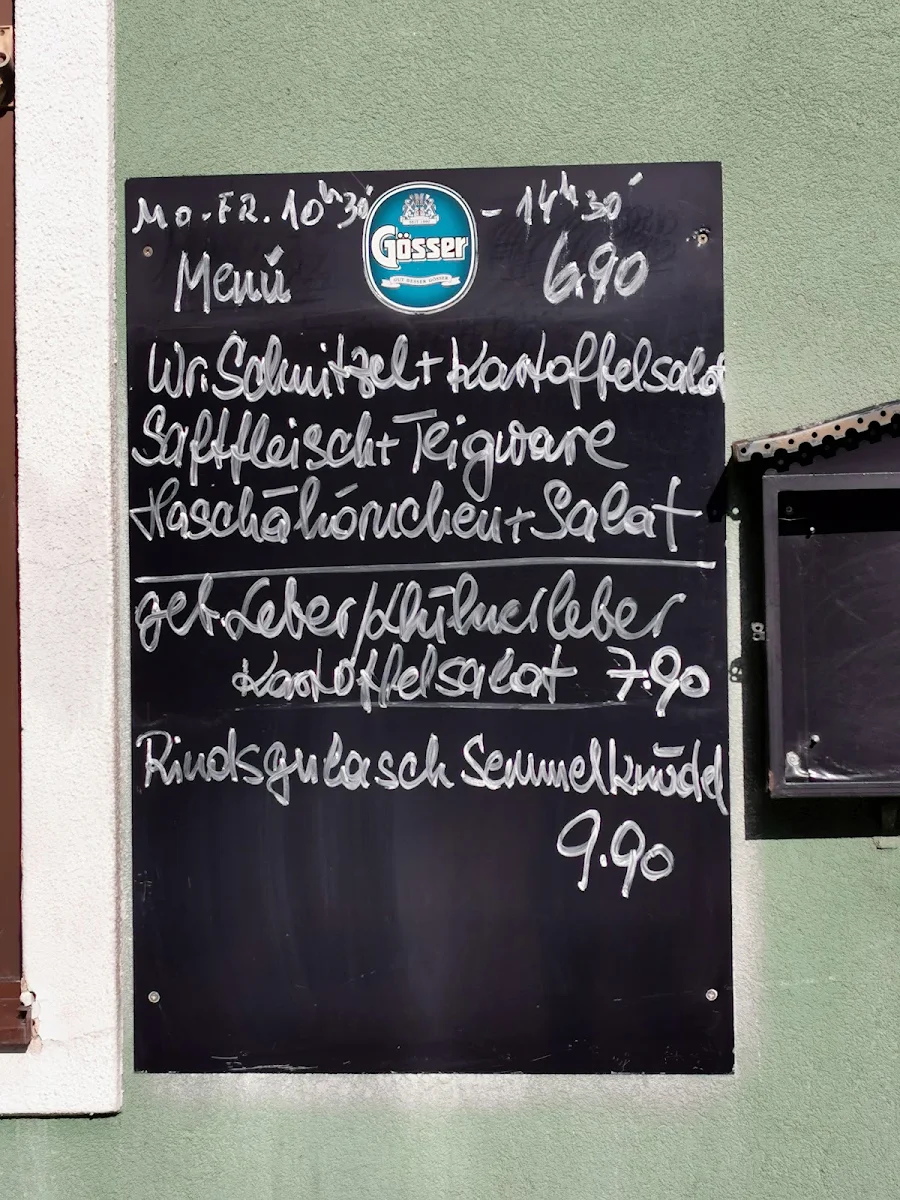 Mo.-FR. 10h30' - 14h30'
Gösser
GUT. BESSER. GÖSSER.
Menü 6.90
Wr. Schnitzel + Kartoffelsalat
Saftfleisch + Teigware
Haschähörnchen + Salat
geb. Leber / Hühnerleber
Kartoffelsalat 7.90
Rindsgulasch Semmelknödel
9.90